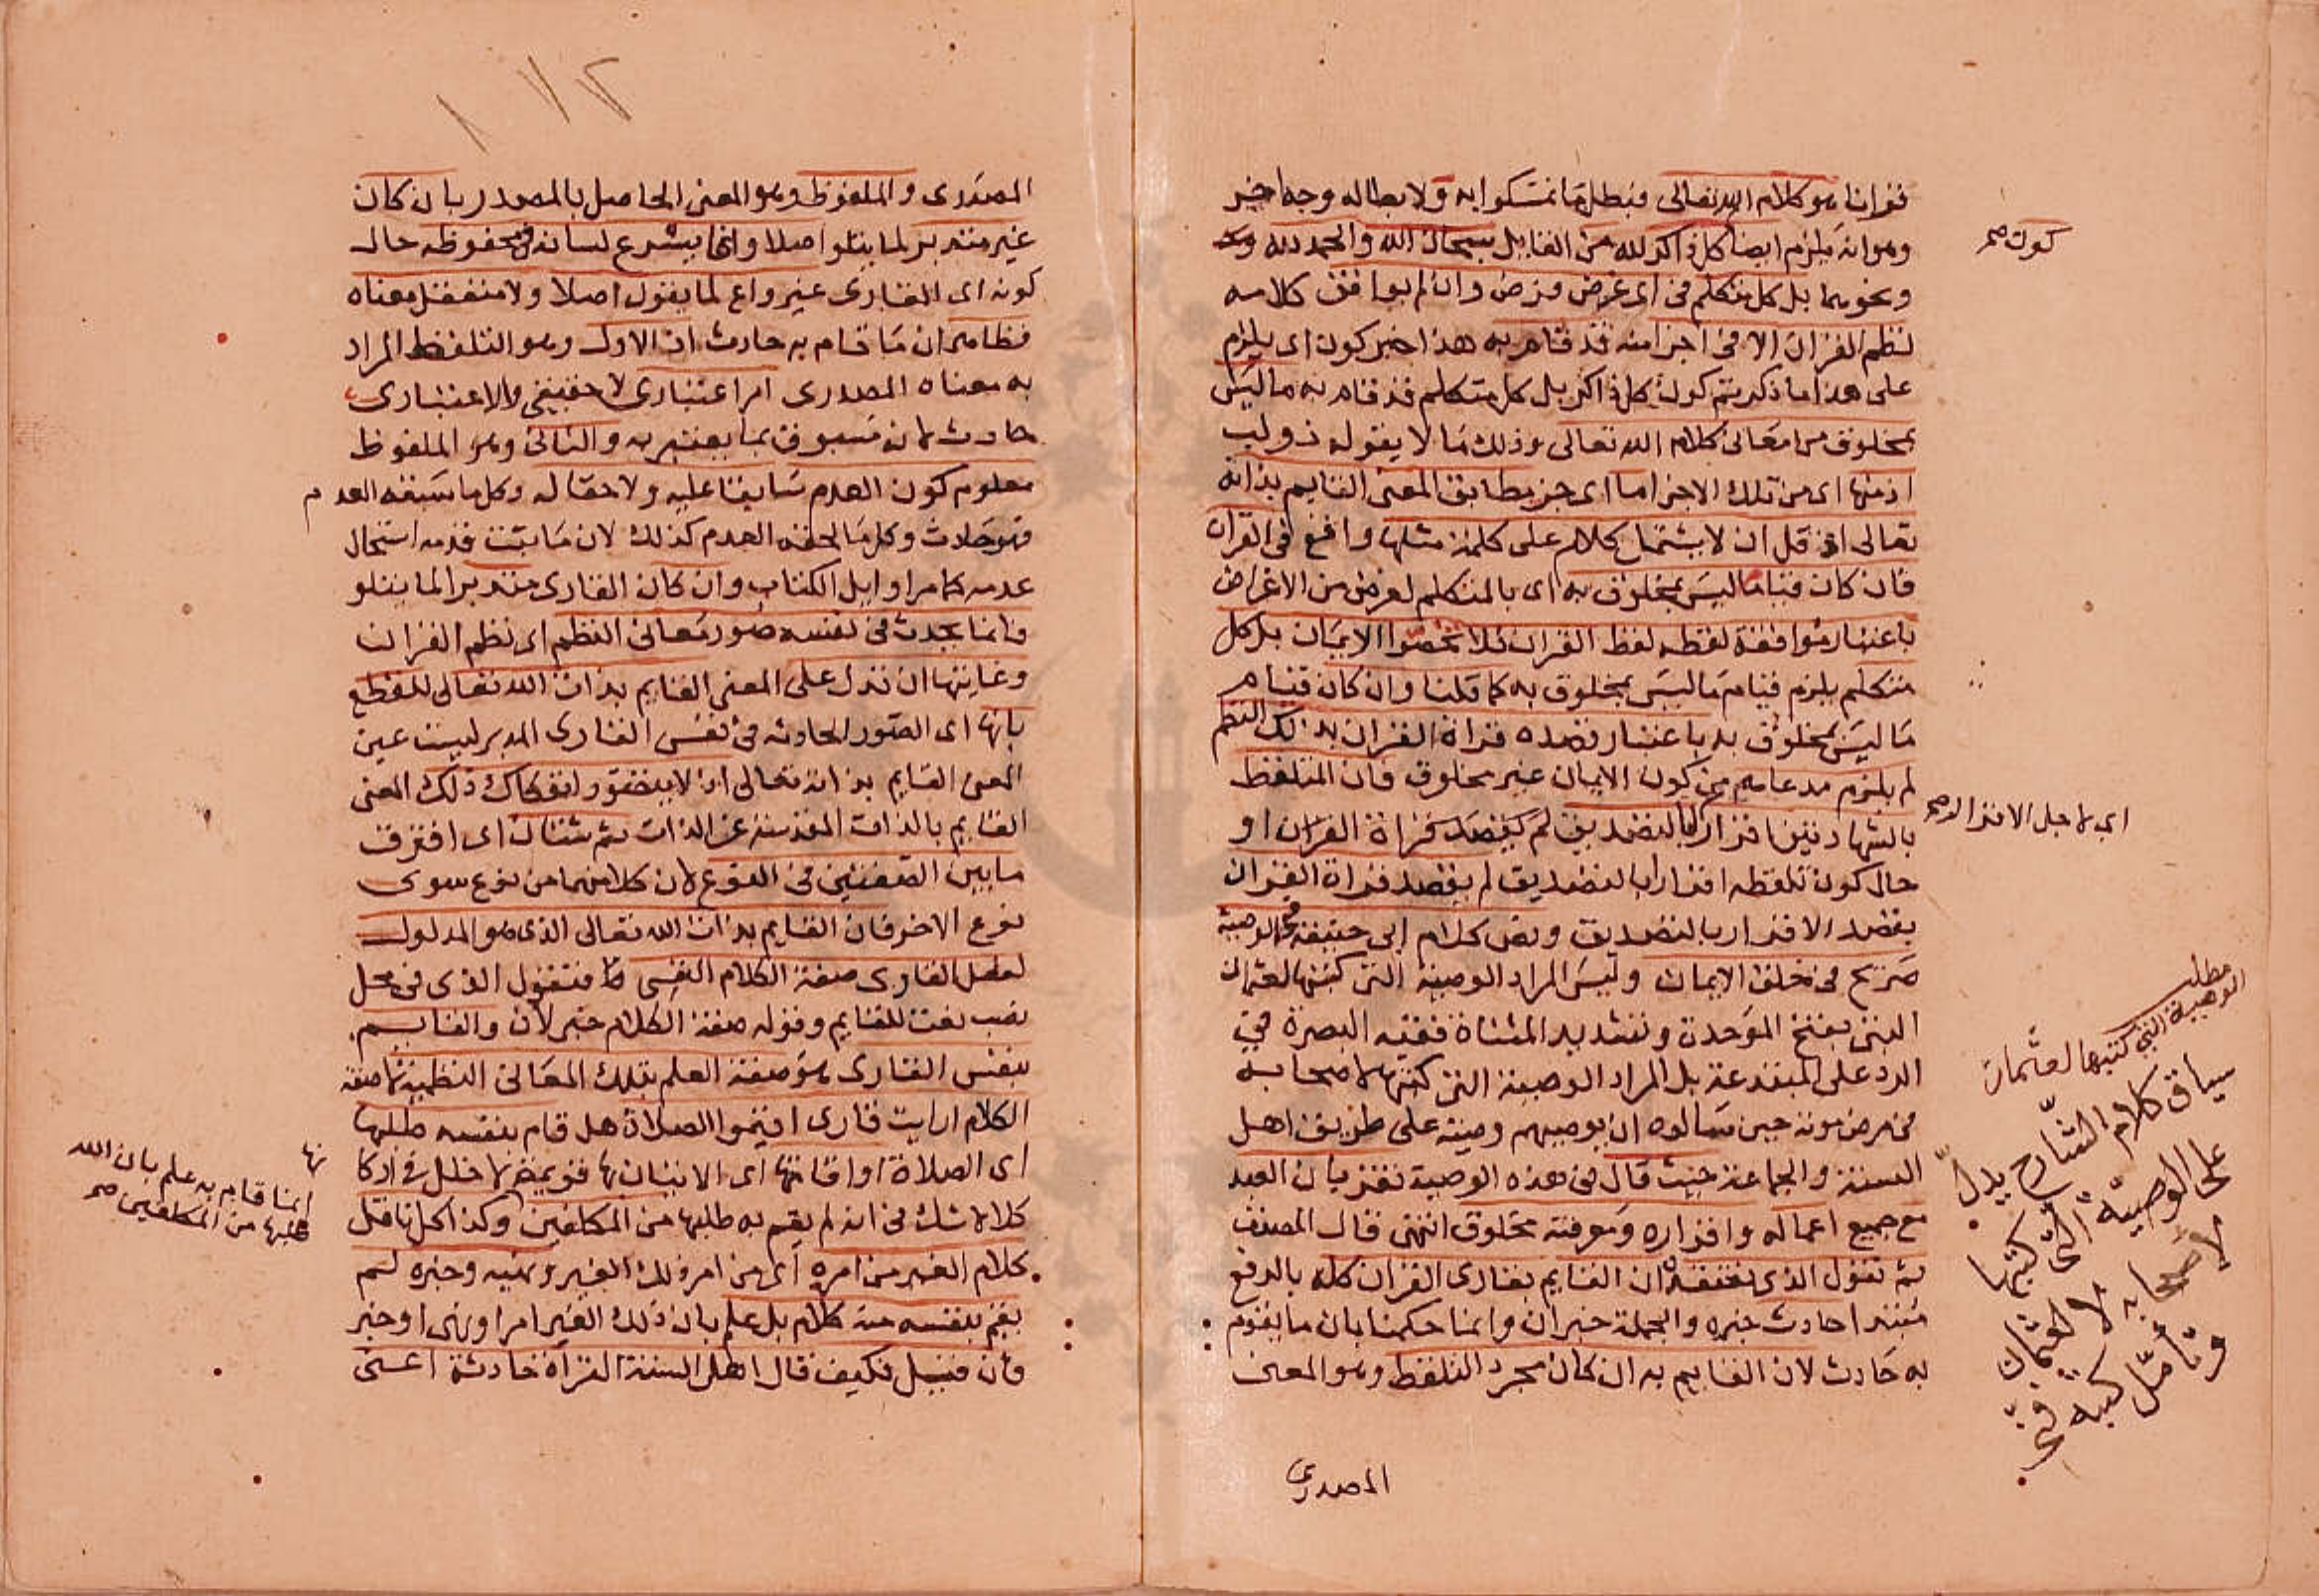 قرانا هو كلام الله تعالى فبطل ما تمسكوا به ولابطاله وجه اخر
وهو انه يلزم ايضا كل ذاكر لله من القايل سبحان الله والحمد لله
ونحوهما بل كل متكلم في اى غرض فرض وان لم يوافق كلامه
لنظم القران الا في اجزا منه قد قام به هذا خبر كون اى يلزم
على هذا ما ذكرتم كون كل ذاكر بل كل متكلم قد قام به ما ليس
بمخلوق من معانى كلام الله تعالى وذلك ما لا يقوله ذو لب
اذ منها اى من تلك الاجزا ما اى جز يطابق المعنى القايم بذاته
تعالى اذ قل ان لا يشتمل كلام على كلمة مثلها واقع فى القران
فان كان قيام ما ليس بمخلوق به اى بالمتكلم لغرض من الاغراض
باعتبار موافقة لفظه لفظ القران فلا تخصوا الايمان بل كل
متكلم يلزم قيام ما ليس بمخلوق به كما قلنا وان كان قيام
ما ليس بمخلوق به باعتبار قصده قراة القران بذلك النظم
لم يلزم مدعاهم من كون الايمان غير مخلوق فان المتلفظ
بالشهادتين اقرارا بالتصديق لم يقصد قراة القران او
حال كون تلفظه اقرارا بالتصديق لم يقصد قراة القران
بقصد الاقرار بالتصديق ونص كلام ابى حنيفة في الوصية
صريح في خلق الايمان وليس المراد الوصية التى كتبها لعثمان
البتى بفتح الموحدة وتشديد المثناة فقيه البصرة في
الرد على المبتدعة بل المراد الوصية التى كتبها لاصحابه
في مرض موته حين سالوه ان يوصيهم وصية على طريق اهل
السنة والجماعة حيث قال في هذه الوصية نقر بان العبد
مع جميع اعماله واقراره ومعرفته مخلوق انتهى قال المصنف
ثم نقول الذى نعتقده ان القايم بقارى القران كله بالرفع
مبتدا حادث خبره والجملة خبر ان وانما حكمنا بان ما يقوم
به حادث لان القايم به ان كان مجرد التلفظ وهو المعنى
المصدرى
كون صح
اى لاجل الاقرار صح
مطلب
الوصية التى كتبها لعثمان
سياق كلام الشارح يدل
على الوصية التى كتبها
لاصحابه لا لعثمان
وتأمل
المصدرى والملفوظ وهو المعنى الحاصل بالمصدر بان كان
غير متدبر لما يتلو اصلا وانما يشرع لسانه في محفوظه حال
كونه اى القارى غير واع لما يقول اصلا ولا متعقل معناه
فظاهر ان ما قام به حادث اذ الاول وهو التلفظ المراد
به معناه المصدرى امر اعتبارى لا حقيقى والاعتبارى
حادث لانه مسبوق بما يعتبر به والثانى وهو الملفوظ
معلوم كون العدم سابقا عليه ولاحقا له وكل ما سبقه العدم
فهو حادث وكل ما لحقه العدم كذلك لان ما ثبت قدمه استحال
عدمه كما مر اوايل الكتاب وان كان القارى متدبرا لما يتلو
فانما يحدث في نفسه صور معانى النظم اى نظم القران
وغايتها ان تدل على المعنى القايم بذات الله تعالى للقطع
بانها اى الصور الحادثة في نفس القارى المدبر ليست عين
المعنى القايم بذاته تعالى اذ لا يتصور انفكاك ذلك المعنى
القايم بالذات المقدسة عن الذات ثم شتان اى افترق
ما بين الصفتين في النوع لان كلا منهما من نوع سوى
نوع الاخر فان القايم بذات الله تعالى الذى هو المدلول
لفعل القارى صفة الكلام النفسى فنقول الذى في محل
نصب نعت للقايم وقوله صفة الكلام خبر لان والقايم
بنفس القارى هو صفة العلم بتلك المعانى النظمية لا صفة
الكلام ارايت قارى اقيموا الصلاة هل قام بنفسه طلبها
اى الصلاة او اقامتها اى الاتيان بها قويمة لا خلل في اركانها
كلا لا شك في انه لم يقم به طلبها من المكلفين وكذا كل ناقل
كلام الغير من امره اى من امر ذلك الغير ونهيه وخبره لم
يقم بنفسه منه كلام بل علم بان ذلك الغير امر او نهى او خبر
فان قيل فكيف قال اهل السنة القراة حادثة اعنى
انما قام به علم بان الله
طلبها من المكلفين صح